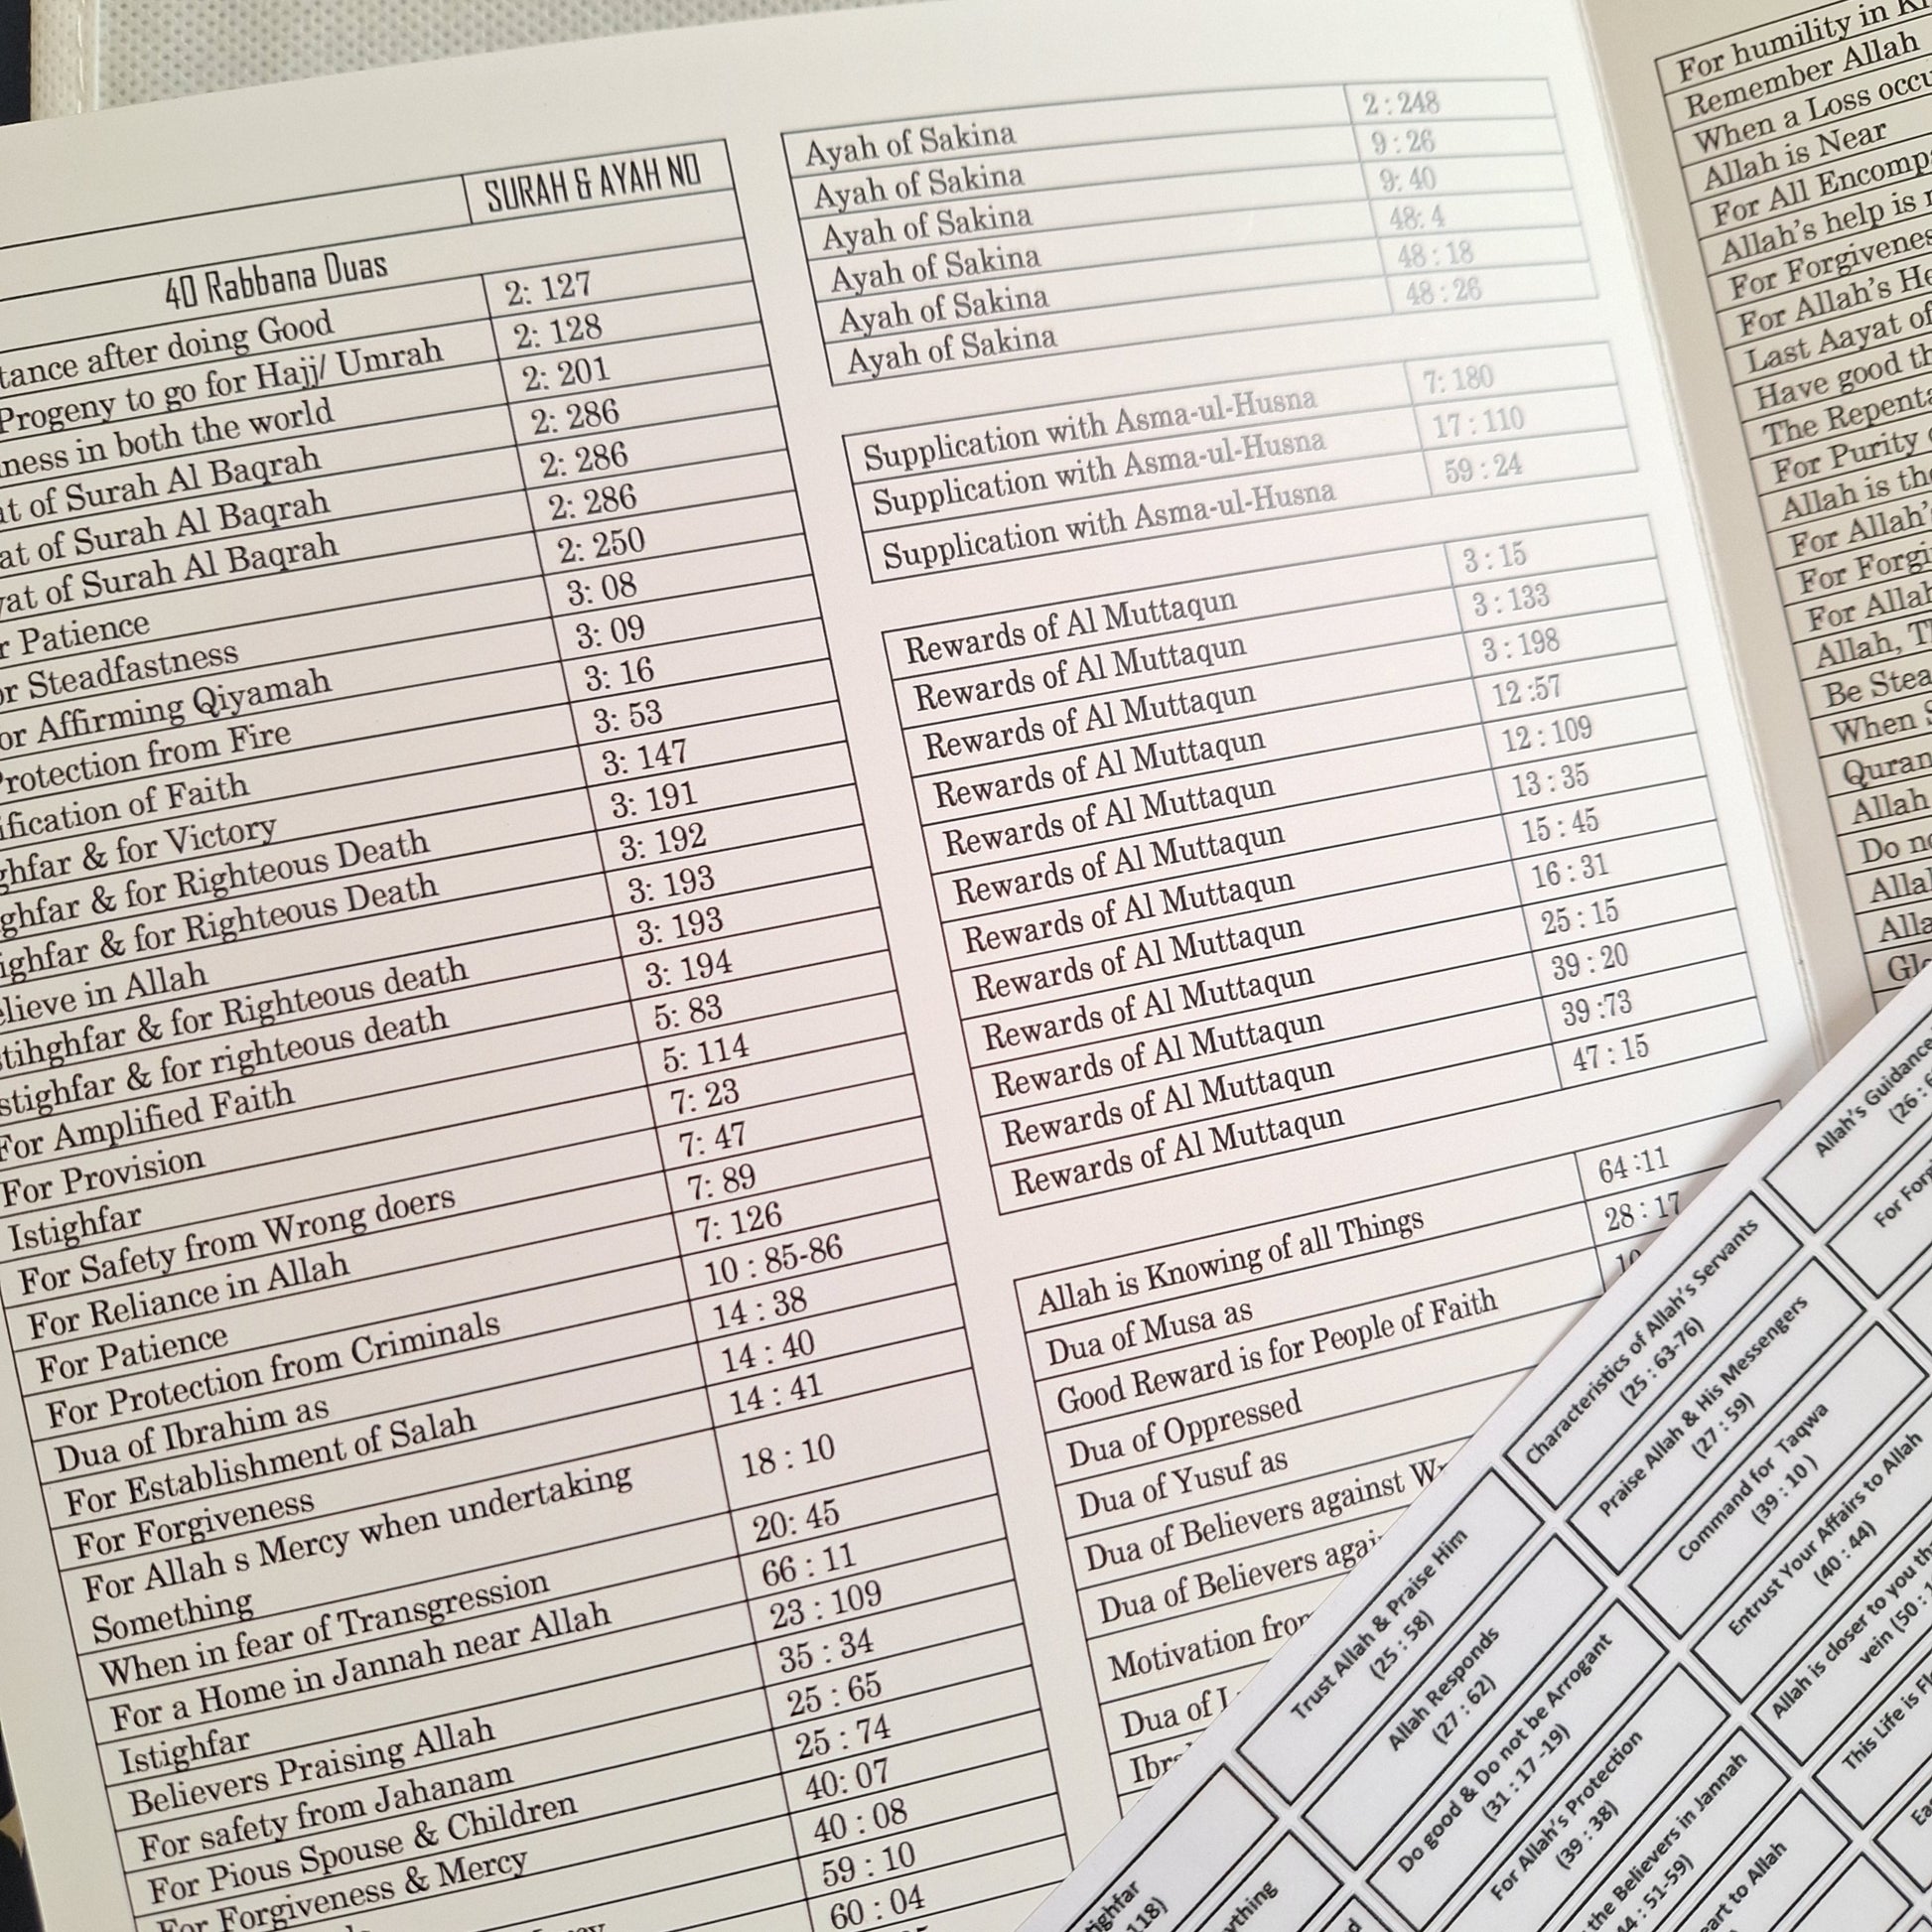 SURAH & AYAH NO
40 Rabbana Duas
after doing Good 2: 127
Progeny to go for Hajj/ Umrah 2: 128
in both the world 2: 201
of Surah Al Baqrah 2: 286
of Surah Al Baqrah 2: 286
of Surah Al Baqrah 2: 286
Patience 2: 250
Steadfastness 3: 08
Affirming Qiyamah 3: 09
Protection from Fire 3: 16
of Faith 3: 53
& for Victory 3: 147
& for Righteous Death 3: 191
& for Righteous Death 3: 192
in Allah 3: 193
& for Righteous death 3: 193
& for righteous death 3: 194
For Amplified Faith 5: 83
For Provision 5: 114
Istighfar 7: 23
For Safety from Wrong doers 7: 47
For Reliance in Allah 7: 89
For Patience 7: 126
For Protection from Criminals 10 : 85-86
Dua of Ibrahim as 14 : 38
For Establishment of Salah 14 : 40
For Forgiveness 14 : 41
For Allah s Mercy when undertaking
Something 18 : 10
When in fear of Transgression 20: 45
For a Home in Jannah near Allah 66 : 11
Istighfar 23 : 109
Believers Praising Allah 35 : 34
For safety from Jahanam 25 : 65
For Pious Spouse & Children 25 : 74
For Forgiveness & Mercy 40: 07
40 : 08
59 : 10
60 : 04
Ayah of Sakina 2 : 248
Ayah of Sakina 9 : 26
Ayah of Sakina 9: 40
Ayah of Sakina 48: 4
Ayah of Sakina 48 : 18
Ayah of Sakina 48 : 26
Supplication with Asma-ul-Husna 7: 180
Supplication with Asma-ul-Husna 17 : 110
Supplication with Asma-ul-Husna 59 : 24
Rewards of Al Muttaqun 3 : 15
Rewards of Al Muttaqun 3 : 133
Rewards of Al Muttaqun 3 : 198
Rewards of Al Muttaqun 12 :57
Rewards of Al Muttaqun 12 : 109
Rewards of Al Muttaqun 13 : 35
Rewards of Al Muttaqun 15 : 45
Rewards of Al Muttaqun 16 : 31
Rewards of Al Muttaqun 25 : 15
Rewards of Al Muttaqun 39 : 20
Rewards of Al Muttaqun 39 :73
Rewards of Al Muttaqun 47 : 15
Allah is Knowing of all Things 64 :11
Dua of Musa as 28 : 17
Good Reward is for People of Faith
Dua of Oppressed
Dua of Yusuf as
Dua of Believers against
Dua of Believers
Motivation
Dua of
For humility in
Remember Allah
When a Loss
Allah is Near
For All
Allah's help is
For
For Allah's
Last Aayat of
Have good
The
For Purity
Allah is
For Allah's
For
For
Allah,
Be
When
Quran
Allah
Do
Allah's Guidance
(26 :
For
Characteristics of Allah's Servants
(25 : 63-76)
Praise Allah & His Messengers
(27 : 59)
Command for Taqwa
(39 : 10 )
Entrust Your Affairs to Allah
(40 : 44)
Allah is closer to you
vein (50 :
This Life is
Trust Allah & Praise Him
(25 : 58)
Allah Responds
(27 : 62)
Do good & Do not be Arrogant
(31 : 17 -19)
For Allah's Protection
(39 : 38)
the Believers in Jannah
: 51-59)
to Allah